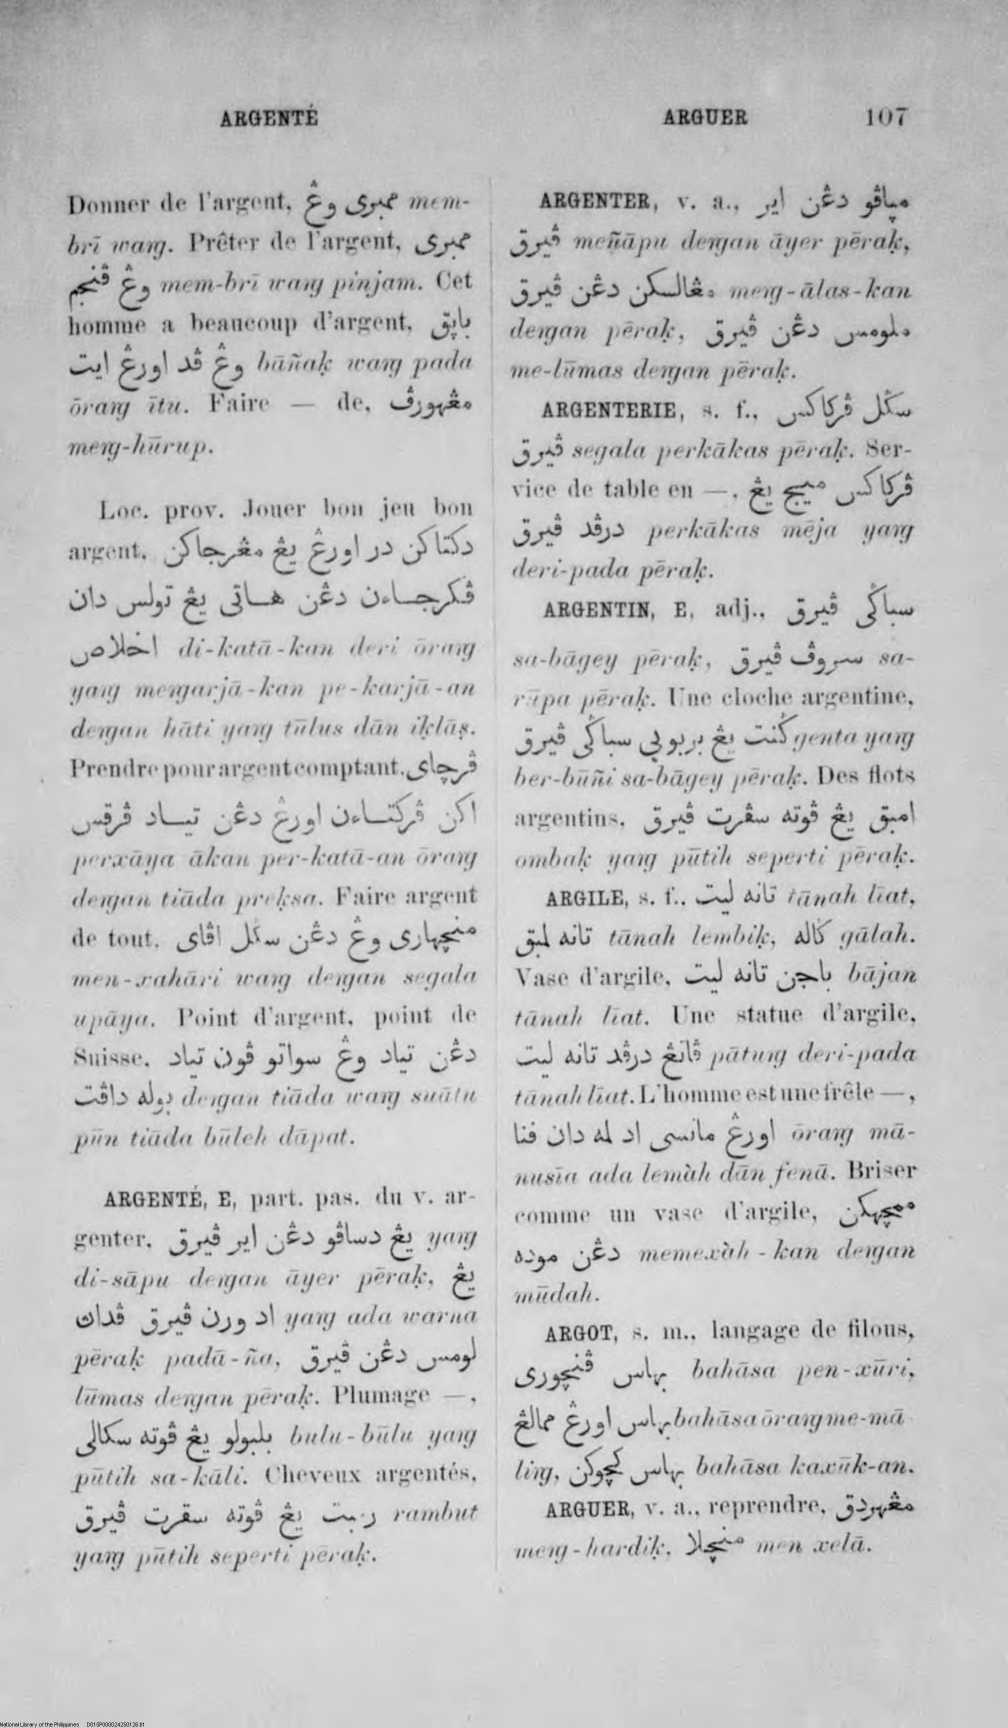 ARGENTÉ
ARGUER 107
Donner de l'argent, ممبري وڠ mem-
brī waṇg. Prêter de l'argent, ممبري
وڠ ڤنجم mem-brī waṇg pinjam. Cet
homme a beaucoup d'argent, باڽق
وڠ ڤد اورڠ ايت bāñaḳ waṇg pada
ōraṇg ītu. Faire — de, مڠهورڤ
meṇg-hūrup.
Loc. prov. Jouer bon jeu bon
argent, دكتاكن در اورڠ يڠ مڠرجاكن
ڤكرجاءن دڠن هاتي يڠ تولس دان
اخلاص di-katā-kan deri ōraṇg
yaṇg meṇgarjā-kan pe-karjā-an
deṇgan hāti yaṇg tūlus dān iḳlāṣ.
Prendre pour argent comptant, ڤرچاي
اكن ڤركتاءن اورڠ دڠن تياد ڤرقس
perxāya ākan per-katā-an ōraṇg
deṇgan tiāda preḳsa. Faire argent
de tout, منچهاري وڠ دڠن سݢل اڤاي
men-xahāri waṇg deṇgan segala
upāya. Point d'argent, point de
Suisse, دڠن تياد وڠ سواتو ڤون تياد
بوله داڤت deṇgan tiāda waṇg suātu
pūn tiāda būleh dāpat.
ARGENTÉ, E, part. pas. du v. ar-
genter, يڠ دساڤو دڠن اير ڤيرق yaṇg
di-sāpu deṇgan āyer pēraḳ, يڠ
اد ورن ڤيرق ڤداڽ yaṇg ada warna
pēraḳ padā-ña, لومس دڠن ڤيرق
lūmas deṇgan pēraḳ. Plumage —,
بلبولو يڠ ڤوته سكالي bulu-būlu yaṇg
pūtih sa-kāli. Cheveux argentés,
رمبت يڠ ڤوته سڤرت ڤيرق rambut
yaṇg pūtih seperti pēraḳ.
ARGENTER, v. a., مڽاڤو دڠن اير
ڤيرق meñāpu deṇgan āyer pēraḳ,
مڠالسكن دڠن ڤيرق meṇg-ālas-kan
deṇgan pēraḳ, ملومس دڠن ڤيرق
me-lūmas deṇgan pēraḳ.
ARGENTERIE, s. f., سݢل ڤركاكس
ڤيرق segala perkākas pēraḳ. Ser-
vice de table en —, ڤركاكس ميج يڠ
درڤد ڤيرق perkākas mēja yaṇg
deri-pada pēraḳ.
ARGENTIN, E, adj., سباݢي ڤيرق
sa-bāgey pēraḳ, سروڤ ڤيرق sa-
rūpa pēraḳ. Une cloche argentine,
ݢنت يڠ بربوڽي سباݢي ڤيرق genta yaṇg
ber-būñi sa-bāgey pēraḳ. Des flots
argentins, امبق يڠ ڤوته سڤرت ڤيرق
ombaḳ yaṇg pūtih seperti pēraḳ.
ARGILE, s. f., تانه ليت tānah līat,
تانه لمبق tānah lembik, ݢاله gālah.
Vase d'argile, باجن تانه ليت bājan
tānah līat. Une statue d'argile,
ڤاتڠ درڤد تانه ليت pātuṇg deri-pada
tānah līat. L'homme est une frêle —,
اورڠ مانسي اد لمه دان فنا ōraṇg mā-
nusīa ada lemàh dān fenā. Briser
comme un vase d'argile, ممچهكن
دڠن موده memexàh-kan deṇgan
mūdah.
ARGOT, s. m., langage de filous,
بهاس ڤنچوري bahāsa pen-xūri,
بهاس اورڠ ممالڠ bahāsa ōraṇg me-mā
liṇg, بهاس كچوكن bahāsa kaxūk-an.
ARGUER, v. a., reprendre, مڠهردق
meṇg-hardiḳ, منچلا men xelā.
National Library of the Philippines